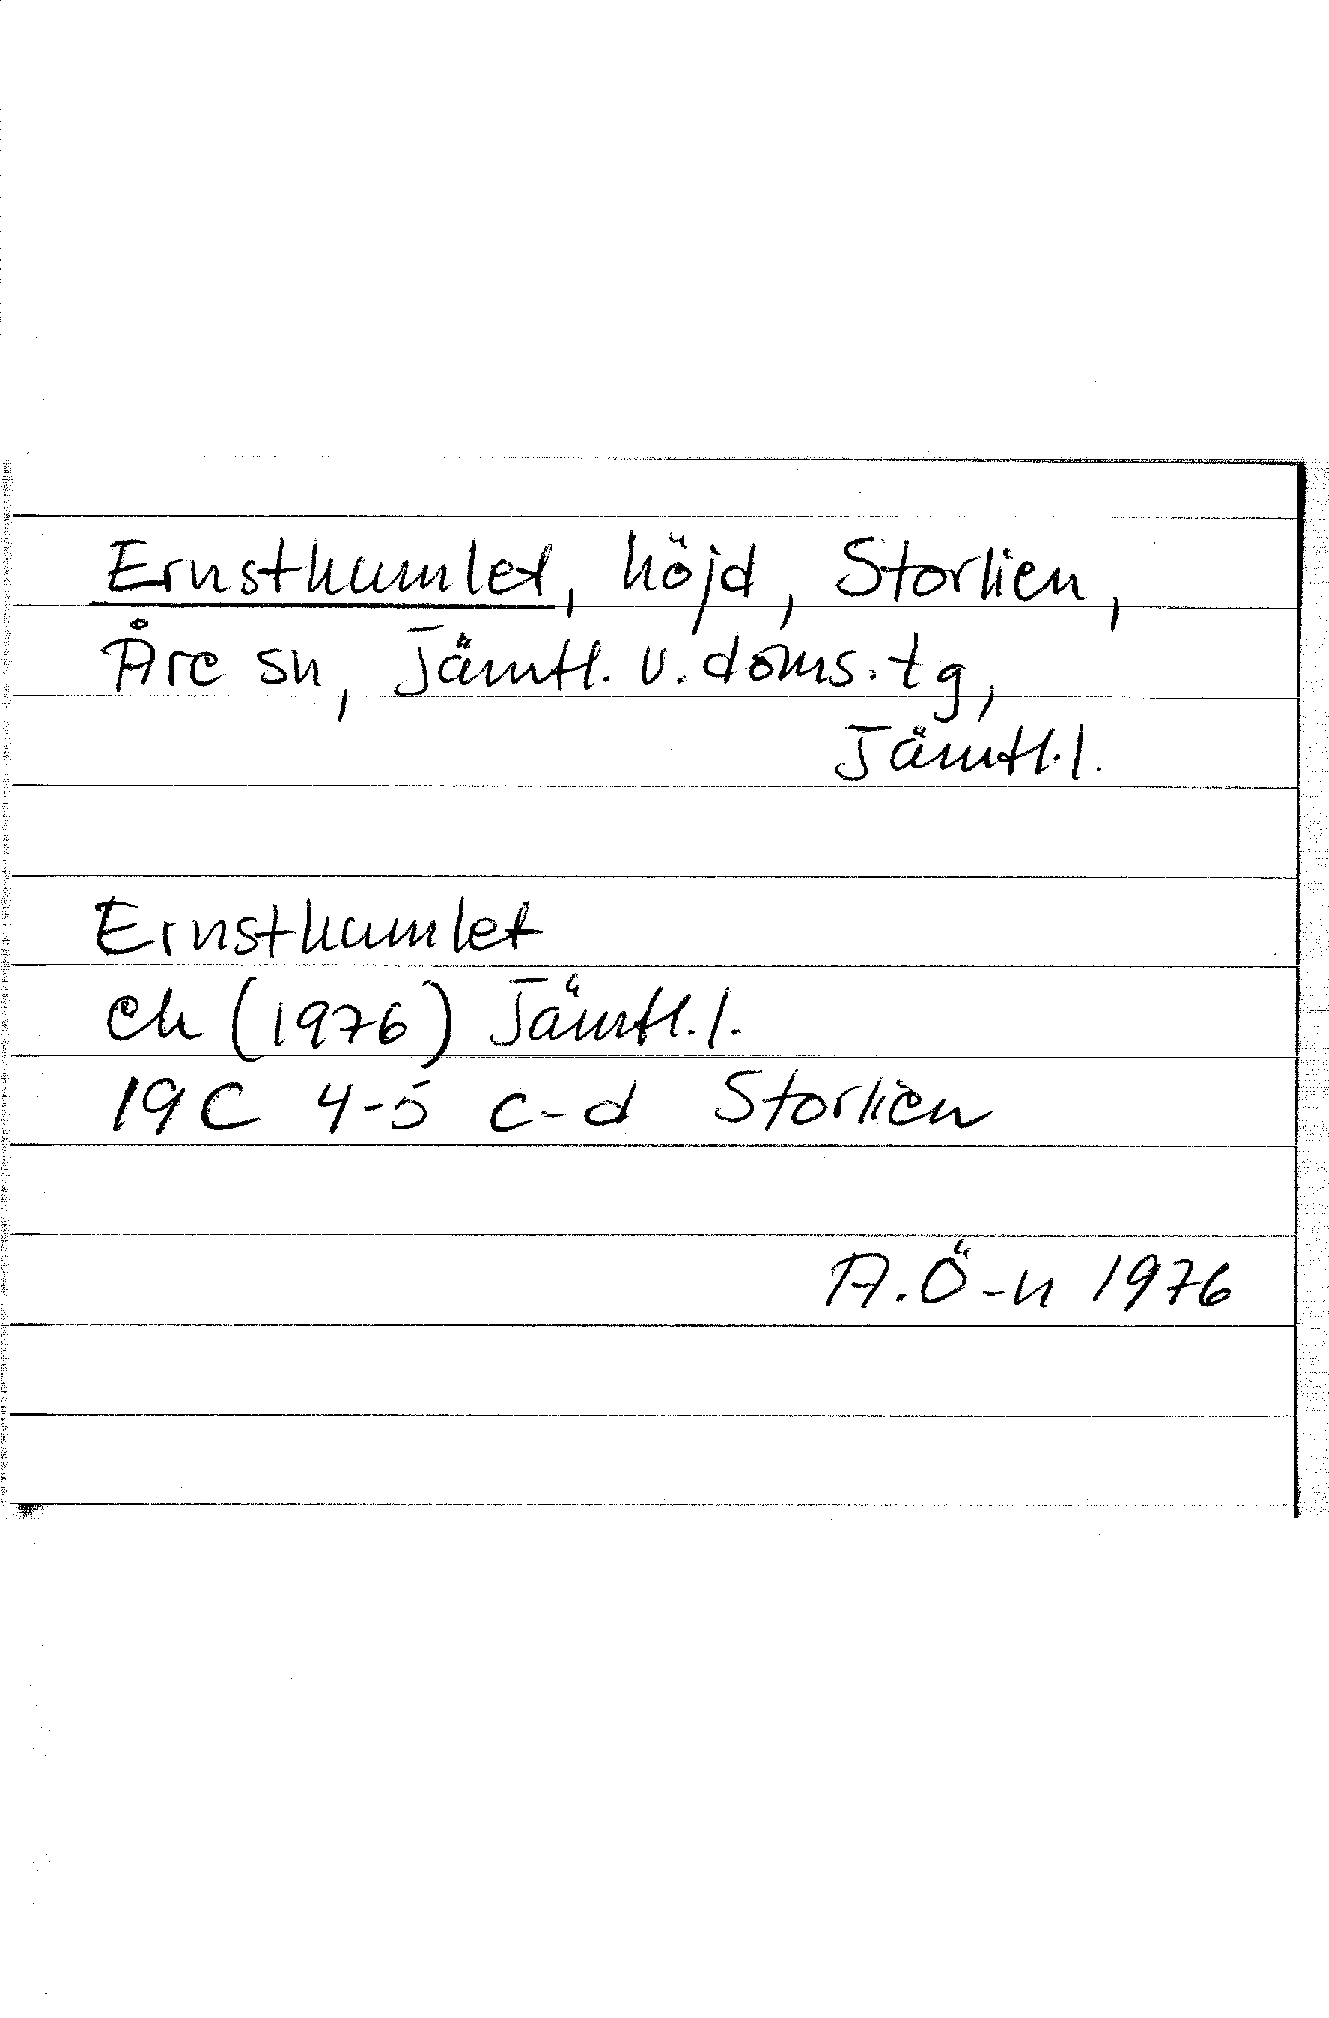 Ernstkumlet, höjd, Storlien,
Åre sn, Jämtl. v. doms.tg,
Jämtl.l.
Ernstkumlet
ek (1976) Jämtl.l.
19C 4-5 c-d Storlien
A.Ö-n 1976